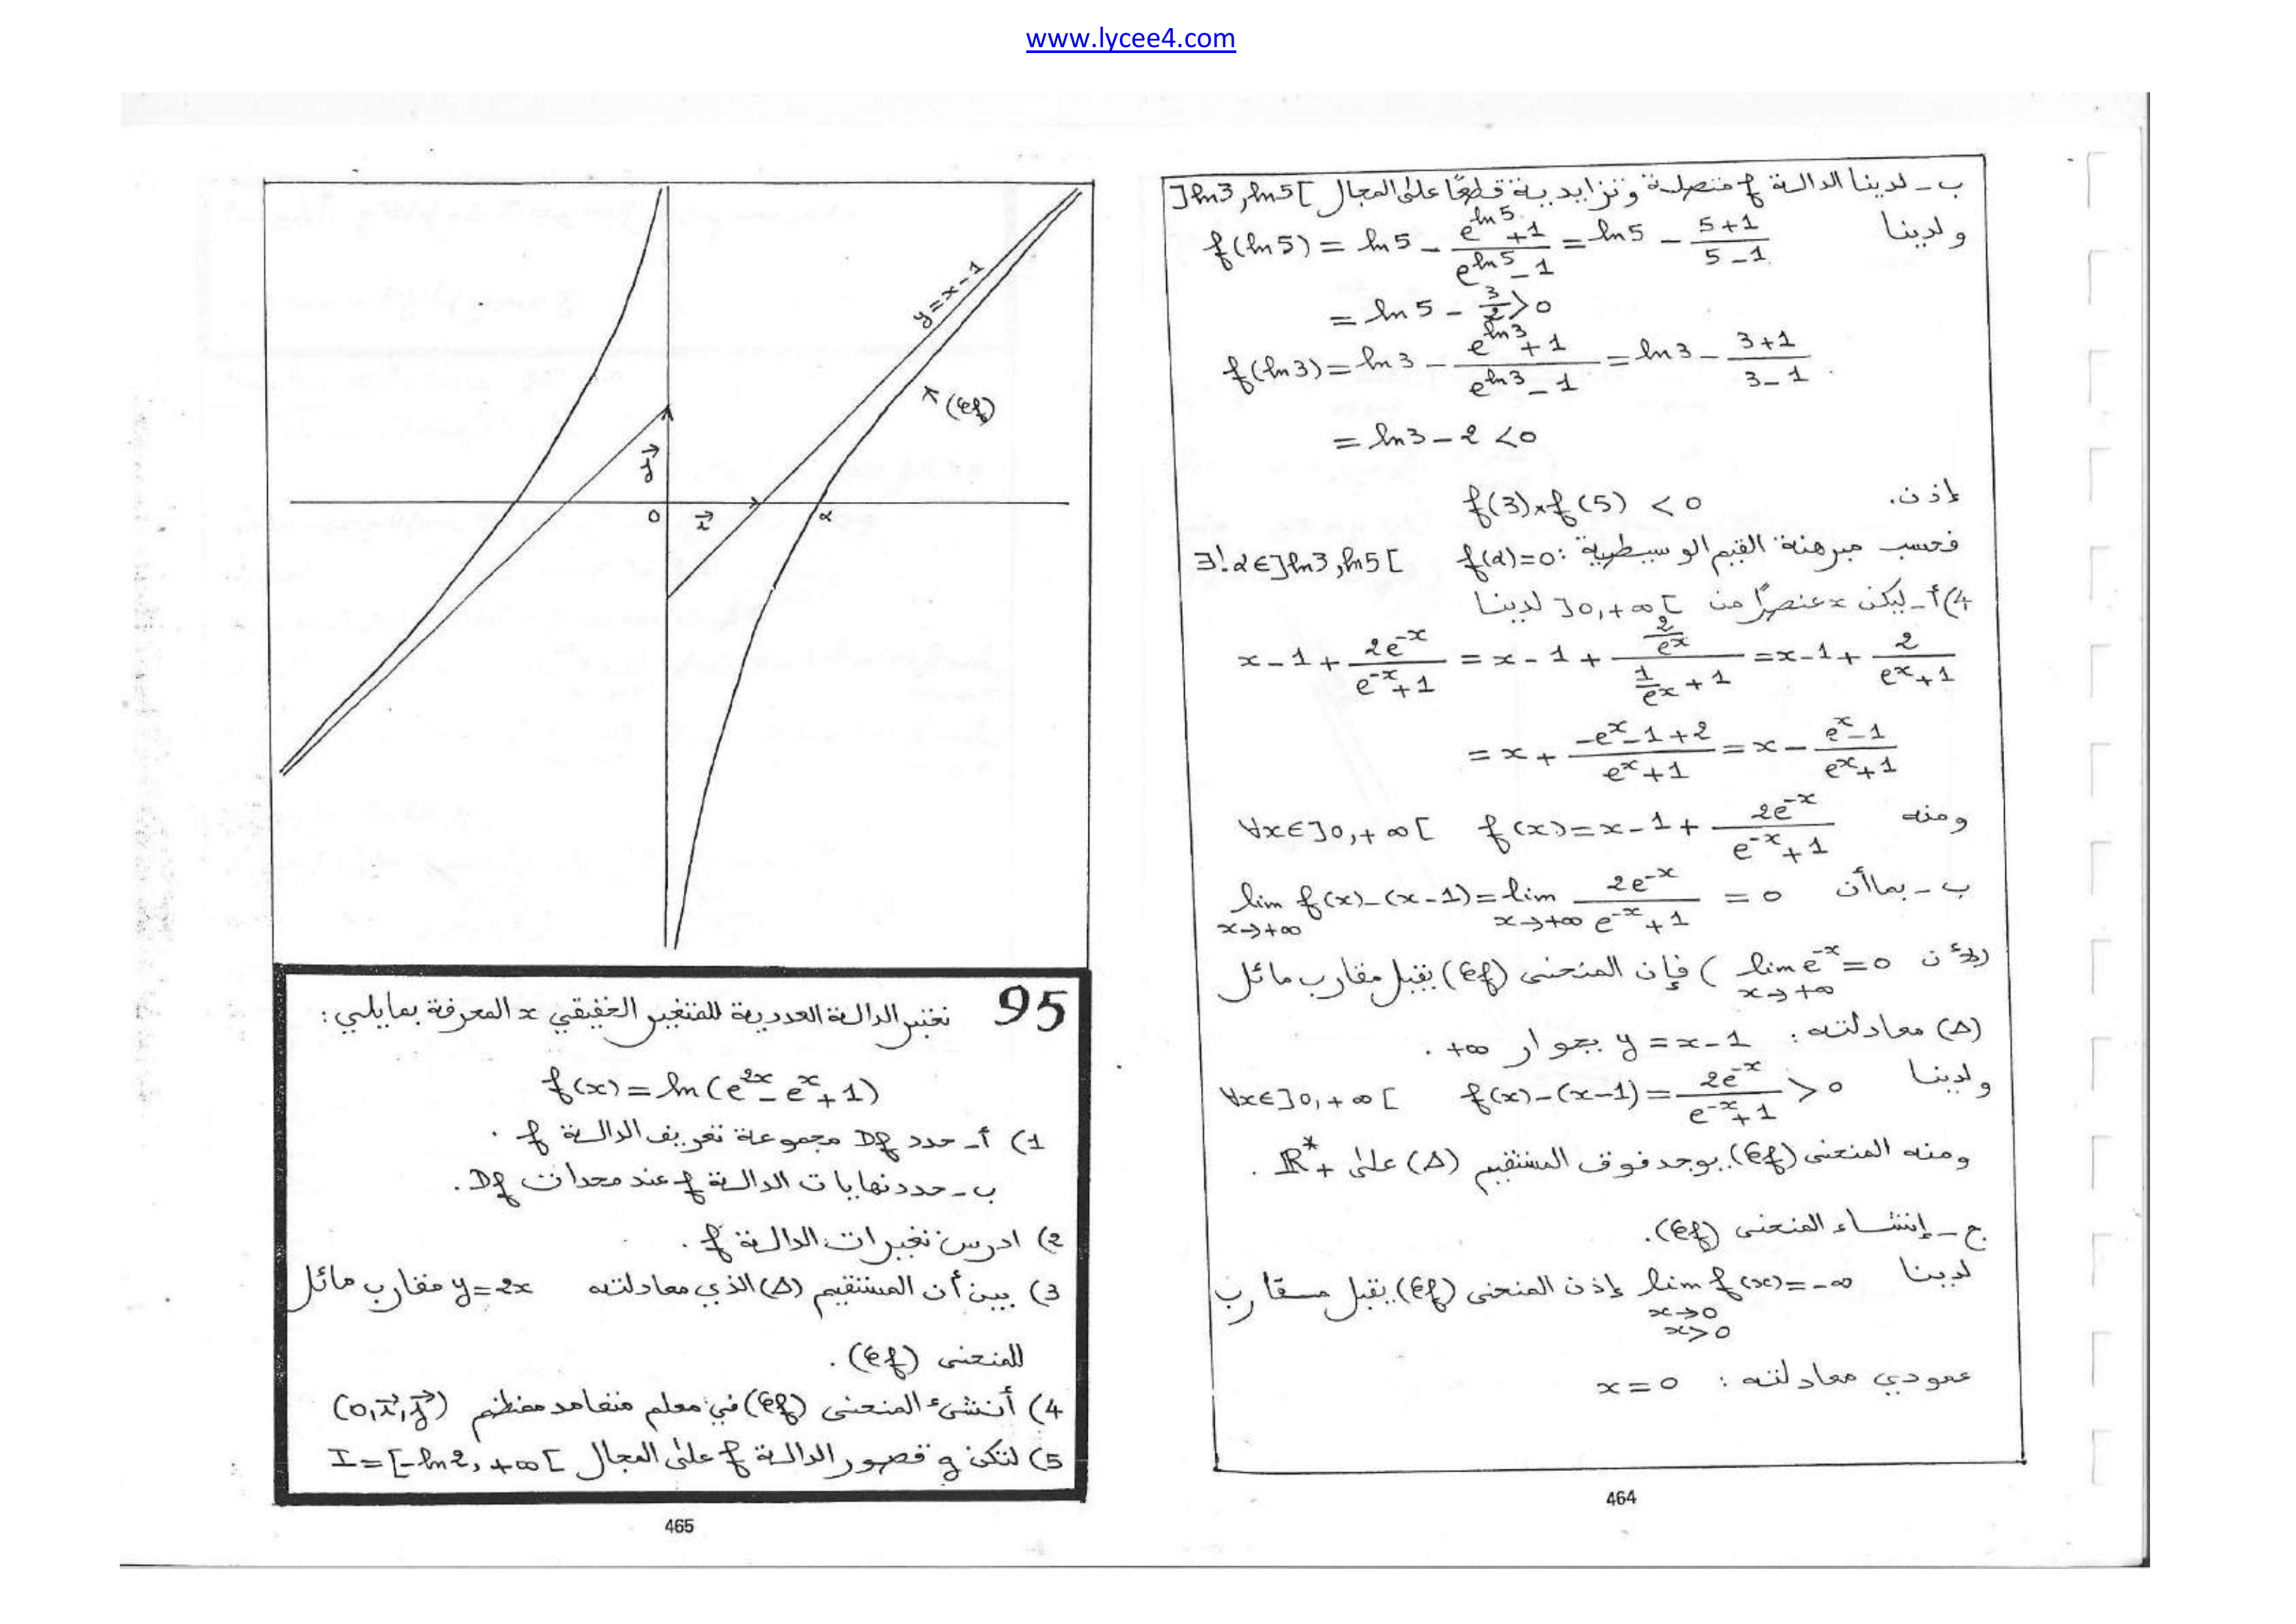 www.lycee4.com
ب - لدينا الدالة f متصلة وتزايدية قطعًا على المجال ]ln3, ln5[
ولدينا f(ln5) = ln5 - (e^{ln5}+1)/(e^{ln5}-1) = ln5 - (5+1)/(5-1)
= ln5 - 3/2 > 0
f(ln3) = ln3 - (e^{ln3}+1)/(e^{ln3}-1) = ln3 - (3+1)/(3-1) .
= ln3 - 2 < 0
إذن. f(3)×f(5) < 0
فحسب مبرهنة القيم الوسيطية : f(α)=0 ∃!α∈]ln3, ln5[
4) أ - ليكن x عنصرًا من ]0, +∞[ لدينا
x - 1 + 2e^{-x}/(e^{-x}+1) = x - 1 + (2/e^x)/(1/e^x + 1) = x - 1 + 2/(e^x+1)
= x + (-e^x - 1 + 2)/(e^x+1) = x - (e^x - 1)/(e^x+1)
ومنه f(x) = x - 1 + 2e^{-x}/(e^{-x}+1) ∀x∈]0, +∞[
ب - بما أن lim_{x→+∞} f(x) - (x-1) = lim_{x→+∞} 2e^{-x}/(e^{-x}+1) = 0
(لأن lim_{x→+∞} e^{-x} = 0) فإن المنحنى (Cf) يقبل مقارب مائل
(Δ) معادلته : y = x - 1 بجوار +∞ .
ولدينا f(x) - (x-1) = 2e^{-x}/(e^{-x}+1) > 0 ∀x∈]0, +∞[
ومنه المنحنى (Cf) يوجد فوق المستقيم (Δ) على ℝ*+ .
ج - إنشاء المنحنى (Cf).
لدينا lim_{x→0, x>0} f(x) = -∞ إذن المنحنى (Cf) يقبل مقارب
عمودي معادلته : x = 0
464
y = x - 1
(Cf)
j
0
i
α
95 نعتبر الدالة العددية للمتغير الحقيقي x المعرفة بمايلي :
f(x) = ln(e^{2x} - e^x + 1)
1) أ - حدد Df مجموعة تعريف الدالة f .
ب - حدد نهايات الدالة f عند محدات Df .
2) ادرس تغيرات الدالة f .
3) بين أن المستقيم (Δ) الذي معادلته y = 2x مقارب مائل
للمنحنى (Cf) .
4) أنشئ المنحنى (Cf) في معلم متعامد ممنظم (0, i, j)
5) لتكن g قصور الدالة f على المجال I = [-ln2, +∞[
465